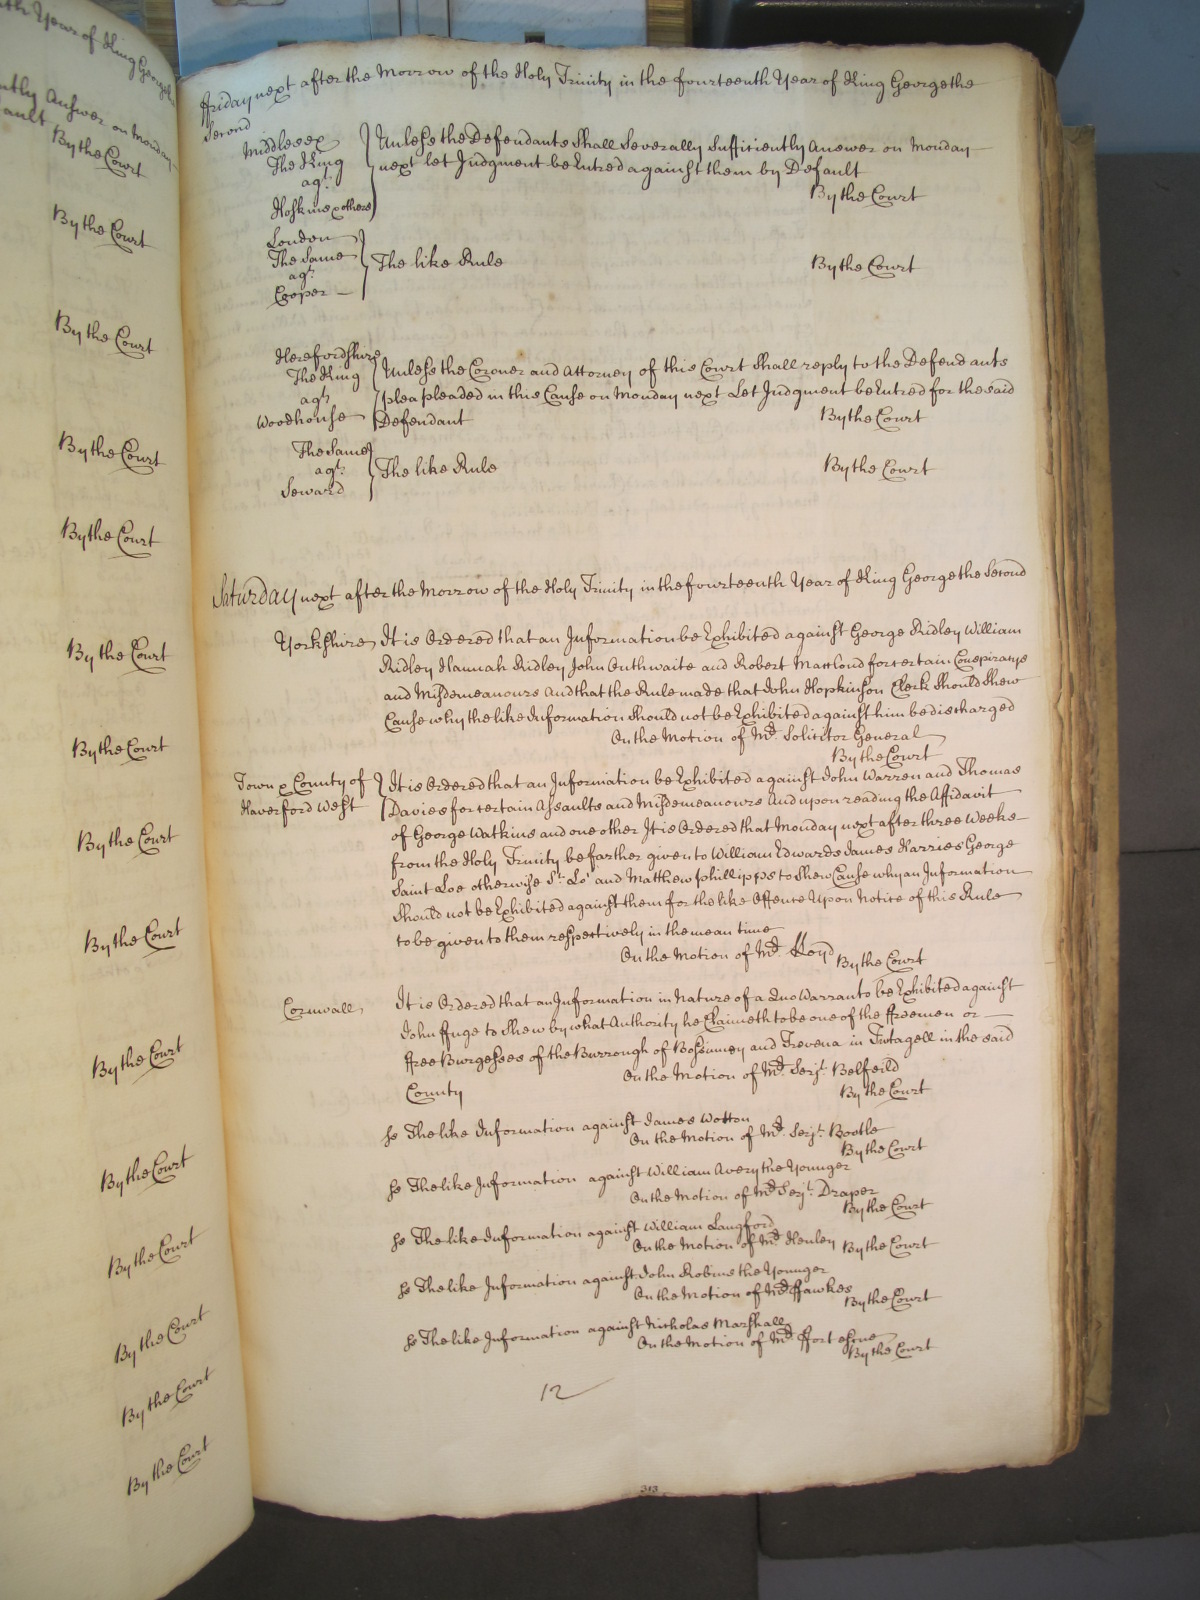 nth Year of King George
ntly Answer on Monday
ault By the Court
By the Court
By the Court
By the Court
By the Court
By the Court
By the Court
By the Court
By the Court
By the Court
By the Court
By the Court
By the Court
By the Court
By the Court
ffriday next after the Morrow of the Holy Trinity in the fourteenth Year of King George the
Second
Middlesex
The King
agt.
Hoskins & others
Unless the Defendants Shall Severally Sufficiently Answer on Monday
next let Judgment be Entred against them by Default
By the Court
London
The Same
agt.
Cooper
The like Rule
By the Court
Herefordshire
The King
agt.
Woodhouse
Unless the Coroner and Attorney of this Court Shall reply to the Defendants
plea pleaded in this Cause on Monday next Let Judgment be Entred for the said
Defendant
By the Court
The Same
agt.
Seward
The like Rule
By the Court
Saturday next after the Morrow of the Holy Trinity in the fourteenth Year of King George the Second
Yorkshire It is Ordered that an Information be Exhibited against George Ridley William
Ridley Hannah Ridley John Outhwaite and Robert for certain Conspiracys
and Misdemeanours And that the Rule made that John Hopkinson Clerk Should Shew
Cause why the like Information Should not be Exhibited against him be discharged
On the Motion of Mr. Solicitor General
By the Court
Town & County of
Haverford West
It is Ordered that an Information be Exhibited against John Warren and Thomas
Davies for certain Assaults and Misdemeanours And upon reading the Affidavit
of George Watkins and one other It is Ordered that Monday next after three Weeks
from the Holy Trinity be farther given to William Edwards James Harries George
Saint Loe otherwise St. Lo and Matthew phillipps to Shew Cause why an Information
Should not be Exhibited against them for the like Offence Upon Notice of this Rule
to be given to them respectively in the mean time
On the Motion of Mr. Lloyd
By the Court
Cornwall It is Ordered that an Information in Nature of a Quo Warranto be Exhibited against
John ffuge to Shew by what Authority he Claimeth to be one of the ffreemen or
ffree Burgesses of the Burrough of Bossinney and Trevena in Tintagell in the said
County
On the Motion of Mr. Serjt. Belfeild
By the Court
ss The like Information against James Wotton
On the Motion of Mr. Serjt. Bootle
By the Court
ss The like Information against William Avery the Younger
On the Motion of Mr. Serjt. Draper
By the Court
ss The like Information against William Langford
On the Motion of Mr. Henley
By the Court
ss The like Information against John Robins the Younger
On the Motion of Mr. ffawkes
By the Court
ss The like Information against Nicholas Marshall
On the Motion of Mr. ffortescue
By the Court
12
313